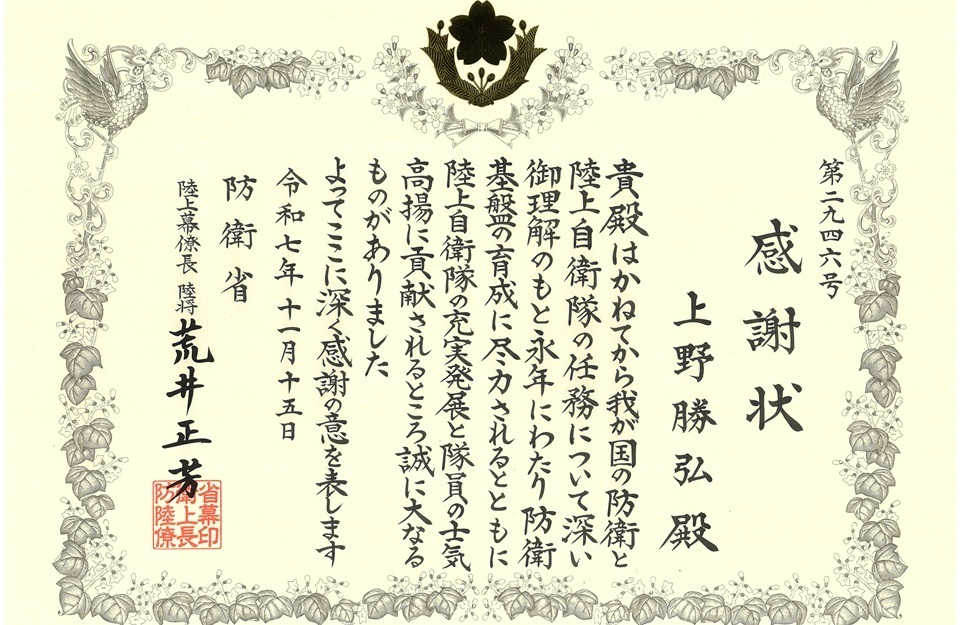 第二九四六号
感謝状
上野勝弘殿
貴殿はかねてから我が国の防衛と
陸上自衛隊の任務について深い
御理解のもと永年にわたり防衛
基盤の育成に尽力されるとともに
陸上自衛隊の充実発展と隊員の士気
高揚に貢献されるところ誠に大なる
ものがありました
よってここに深く感謝の意を表します
令和七年十一月十五日
防衛省
陸上幕僚長 陸将 荒井正芳
省幕印
衛上長
防陸僚